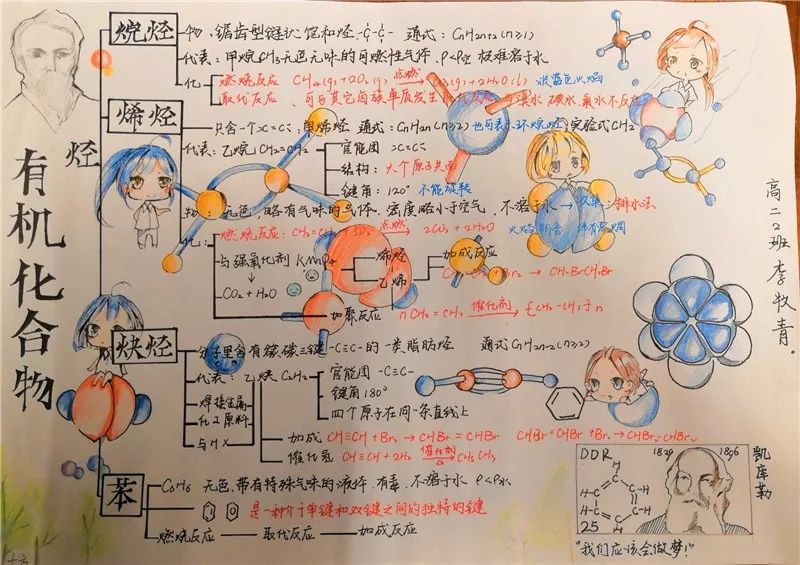 有机化合物
烃
烷烃
物、锯齿型链状饱和烃 -C-C- 通式:CnH2n+2(n≥1)
代表:甲烷CH4无色无味的可燃性气体、ρ<ρ空 极难溶于水
化:
燃烧反应 CH4(g)+2O2(g) 点燃 2(g)+2H2O(l) 淡蓝色火焰
取代反应、可与其它卤族单质发生 代反应 溴水 碘水 氯水不反应
烯烃
只含一个>C=C<,单烯烃 通式:CnH2n(n≥2)也可表示环烷烃,实验式CH2
代表:乙烷 CH2=CH2
官能团 >C=C<
结构:六个原子共面
键角:120° 不能旋转
物:无色,略有气味的气体,密度略小于空气,不溶于水→收集:排水法
化:
燃烧反应:CH2=CH 3O 点燃 2CO2+2H2O
火焰明亮 伴有黑烟
与强氧化剂 KMnO4
CO2+H2O
烯烃
乙烯
加成反应
Br2 → CH2BrCH2Br
加聚反应
nCH2=CH2 催化剂 [CH2-CH2]n
炔烃
分子里含有碳碳三键-C≡C-的一类脂肪烃 通式CnH2n-2(n≥2)
代表:乙炔 C2H2
官能团 -C≡C-
键角180°
四个原子在同一条直线上
焊接金属
化工原料
与HX
加成 CH≡CH+Br2→CHBr=CHBr CHBr=CHBr+Br2→CHBr2CHBr2
催化氢 CH≡CH+2H2 催化剂 △ CH3CH3
苯
C6H6 无色,带有特殊气味的液体,有毒,不溶于水 ρ<ρ水
是一种介于单键和双键之间的独特的键
燃烧反应 取代反应 加成反应
高二2班 李牧青.
DDR 1829 1896
H
H C C H
H C C H
H
25
凯库勒
"我们应该会做梦!"